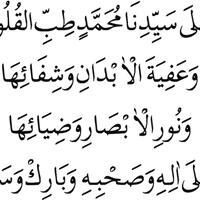 لَى سَيِّدِنَا مُحَمَّدٍ طِبِّ الْقُلُو
وَعَافِيَةِ الْاَبْدَانِ وَشِفَائِهَا
وَنُورِ الْاَبْصَارِ وَضِيَائِهَا
لَى اٰلِهِ وَصَحْبِهِ وَبَارِكْ وَسَ